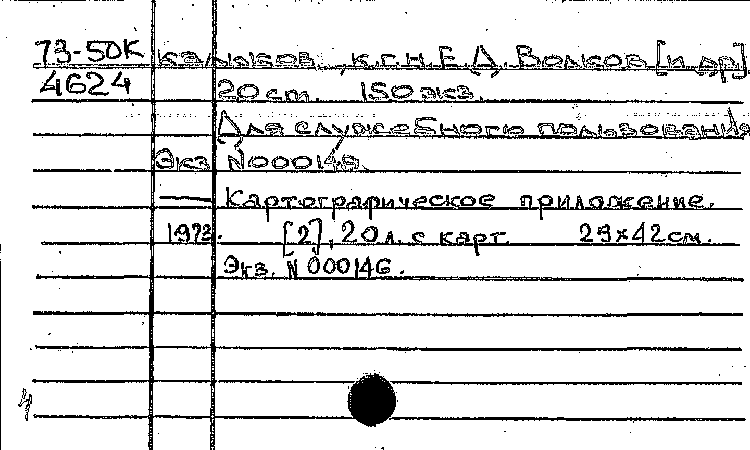 73-50К калыков, к.г.н. Е.Д. Волков [и др].
4624 20 cm. 150 экз.
Для служебного пользования
Экз N000146.
— Картографическое приложение.
1973. [2], 20 л. с карт. 29×42 см.
Экз. N 000146.
4